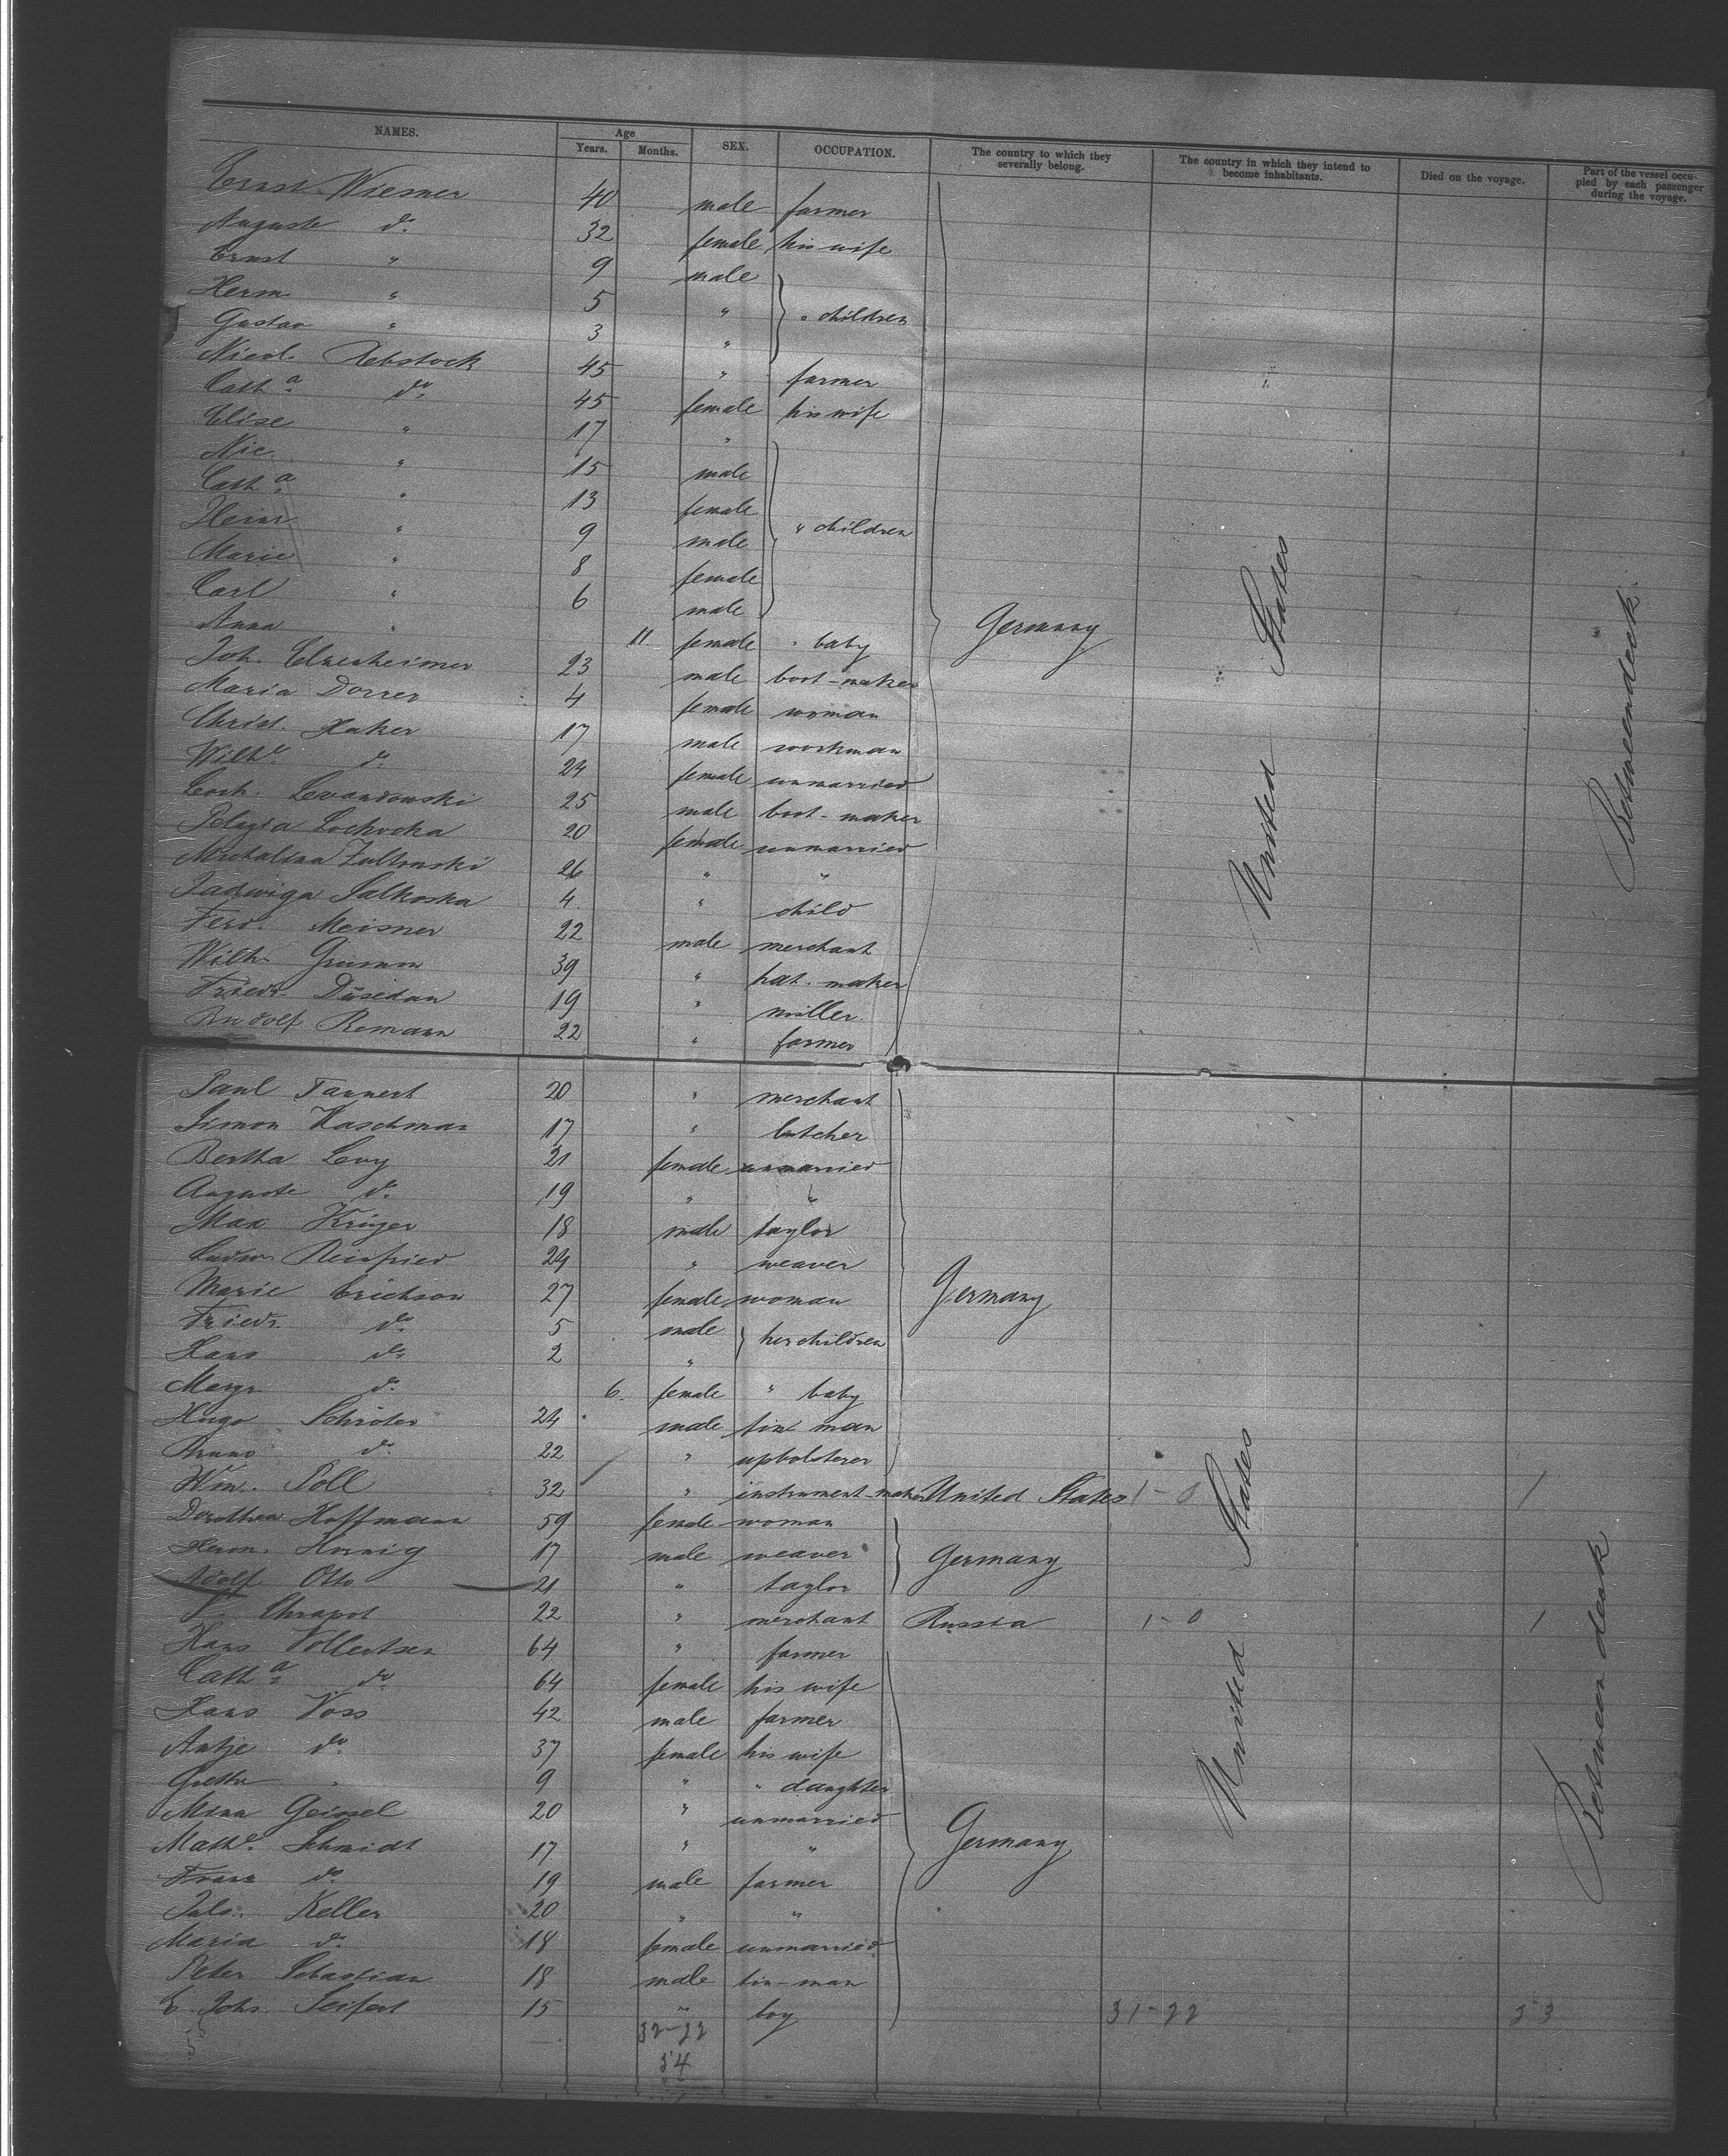 NAMES. Age SEX. OCCUPATION. The country to which they severally belong. The country in which they intend to become inhabitants. Died on the voyage. Part of the vessel occupied by each passenger during the voyage.
Years. Months.
Ernst Wiesner 40 male farmer
Auguste do. 32 female his wife
Ernst " 9 male
Herm. " 5 " " children
Gustav " 3 "
Nicol. Rebstock 45 " farmer
Catha do. 45 female his wife
Elise " 17 "
Nic. " 15 male
Catha " 13 female
Heinr " 9 male " children
Marie " 8 female
Carl " 6 male
Anna " 11 female " baby Germany
Joh. 23 male boot-maker
Maria Dorrer 4 female woman
Christ. Haker 17 male workman
Wilhe do. 24 female unmarried
Levandowski 25 male boot-maker
Pelagia Lochocka 20 female unmarried
Michalina 26 " "
Jadwiga Salkoska 4 " child
Ferd. Meisner 22 male merchant
Wilh. Grumm 39 " hat-maker
Friedr. Düsedau 19 " miller
Rudolf Romann 22 " farmer
United States
Betweendeck
Paul Tannert 20 " merchant
Simon Kaschman 17 " butcher
Bertha Levy 21 female unmarried
Auguste do. 19 " "
Max Krüger 18 male taylor
Ludw. Reinfried 24 " weaver
Marie Erichson 27 female woman Germany
Friedr. do. 5 male her children
Hans do. 2 "
Margr do. 6 female " baby
Hugo Schröter 24 male tin man
Bruno do. 22 " upholsterer
Wm. Poll 32 " instrument-maker United States 1-0 1
Dorothea Hoffmann 59 female woman
Herm. Hornig 17 male weaver Germany
Adolf Otto 21 " taylor
Chrapot 22 " merchant Russia 1-0 1
Hans Vollertsen 64 " farmer
Catha do. 64 female his wife
Hans Voss 42 male farmer
Antje do. 37 female his wife
Grethe " 9 " " daughter
Geissel 20 " unmarried
Mathe. Schmidt 17 " " Germany
Franz do. 19 male farmer
Keller 20 " "
Maria do. 18 female unmarried
Peter Sebastian 18 male tin-man
E. Johs. Seifert 15 " boy 31-22 53
32-22
54
United States
Between deck